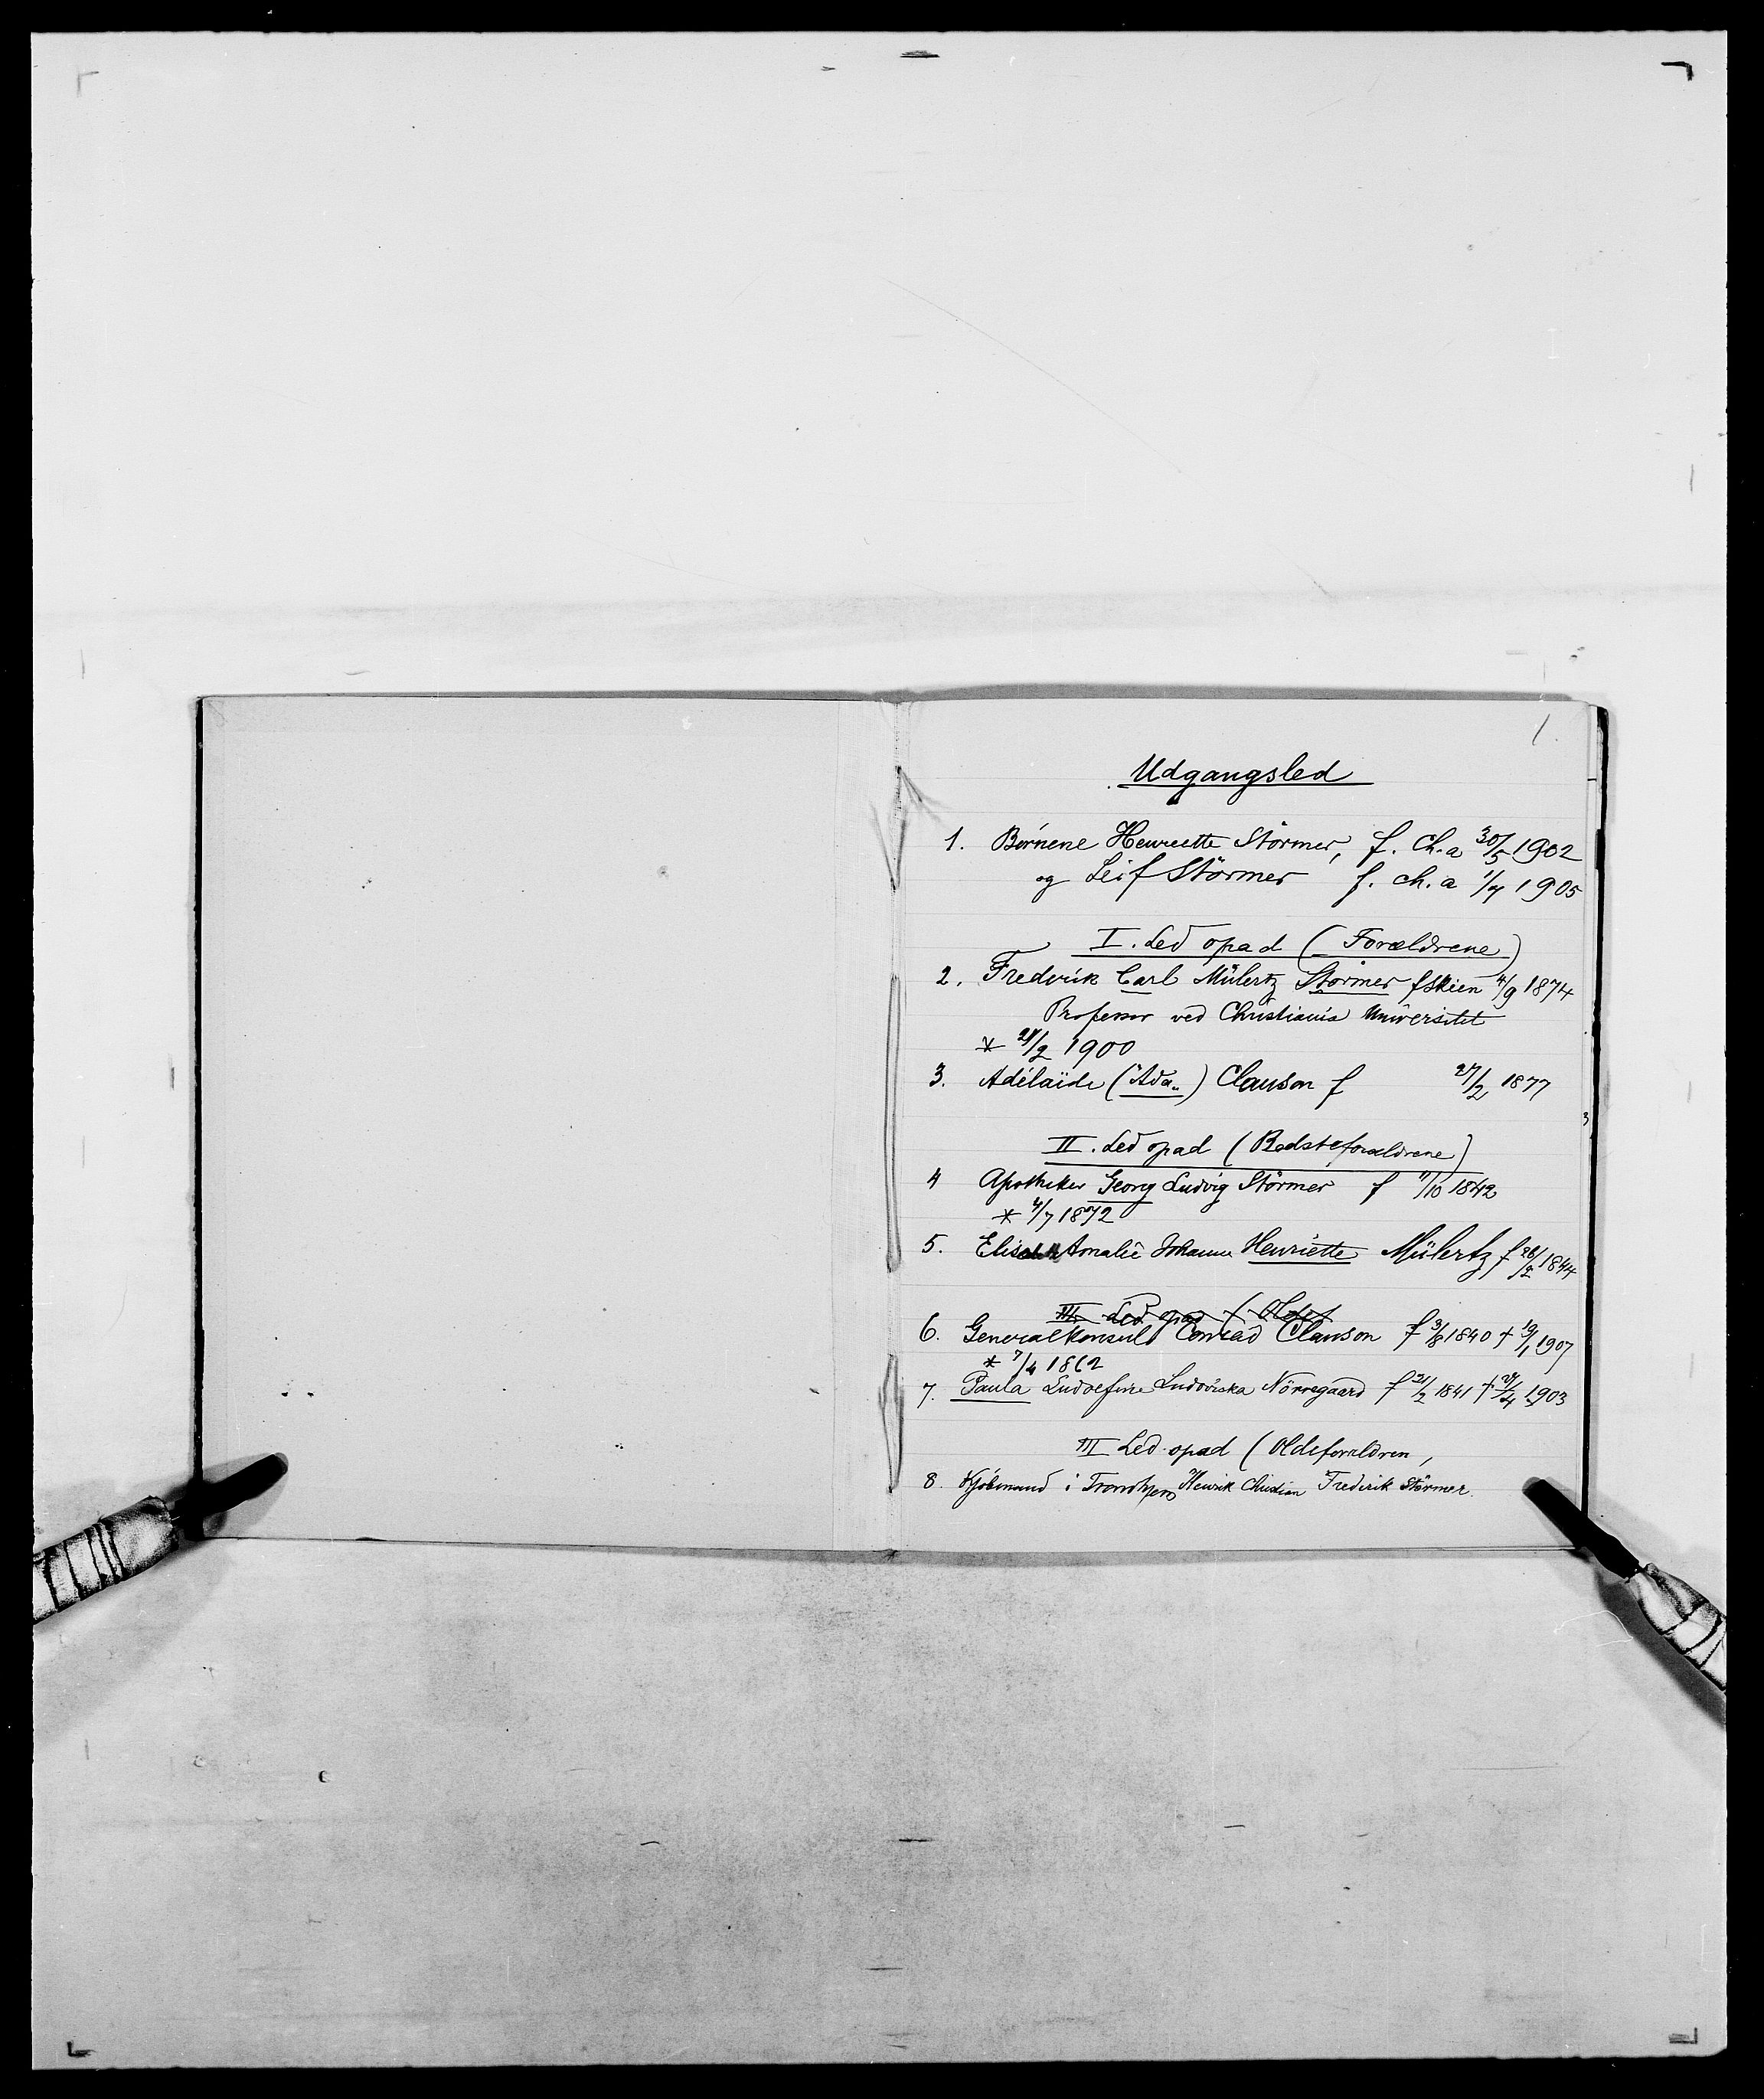 1.
Udgangsled
1. Børnene Henriette Störmer, f. Ch.a 30/5 1902
og Leif Störmer f. ch.a 1/7 1905
I. Led opad (Forældrene)
2. Fredrik Carl Mülertz Störmer f Skien 1874
Professor ved Christiania Universitet
* 1900
3. Adélaïde ("Ada") Clauson f 27/2 1877
II. Led opad (Bedsteforældrene)
4 Apotheker Georg Ludvig Störmer f 11/10 1842
* 4/7 1872
5. Amalie Johanne Henriette Mülertz f 1844
III. Led opad (Oldef
6. Generalkonsul Conrad Clauson f 3/8 1840 † 19/1 1907
* 7/4 1862
7. Paula Ludoviska Nörregaard f 21/2 1841 † 1903
III Led opad (Oldeforældren,
8. Kjöbmand i Trondhjem Henrik Christian Frederik Störmer.